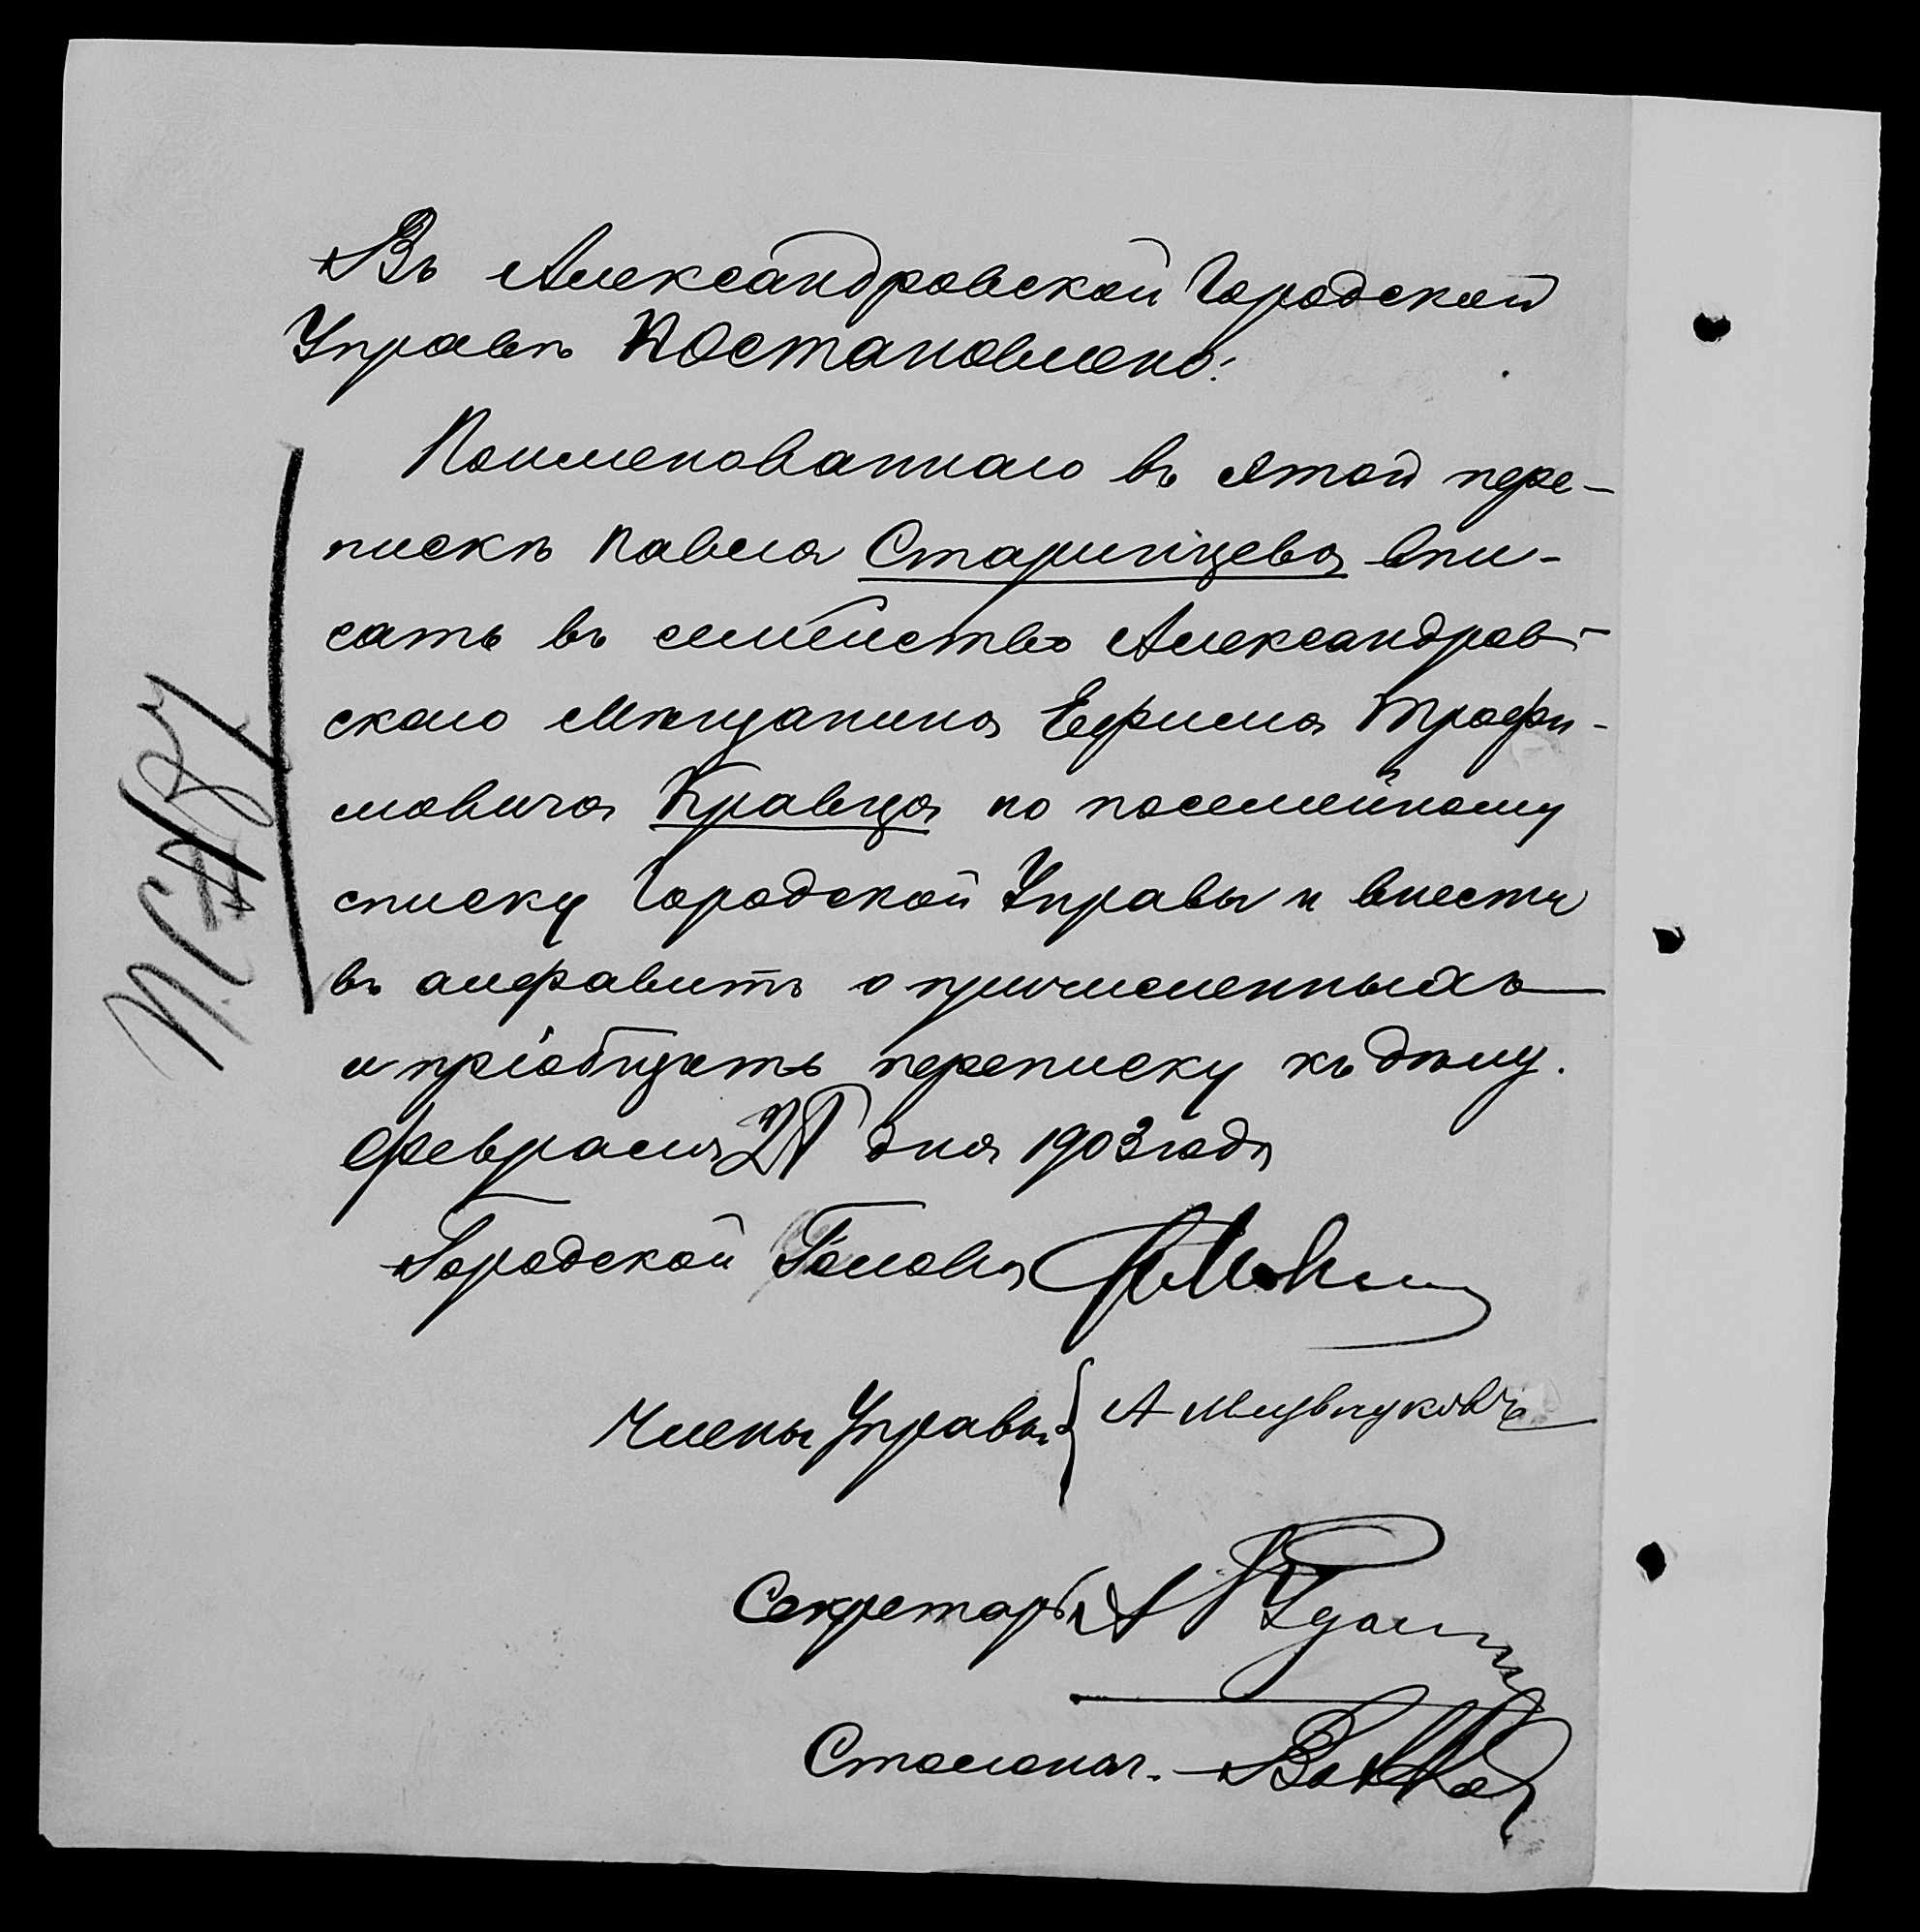 Въ Александровской Городской
Управѣ Постановлено:
Поименованнаго въ этой пере-
пискѣ Павла Старинцева впи-
сать въ семейство Александров-
скаго Мѣщанина Ефима Трофи-
мовича Кравца по посемейному
списку Городской Управы и внести
въ алфавитъ о причисленныхъ
и пріобщить переписку къ дѣлу.
Февраля дня 1903 года
Городской Голова
Члены Управы А
Секретарь А
Столонач.